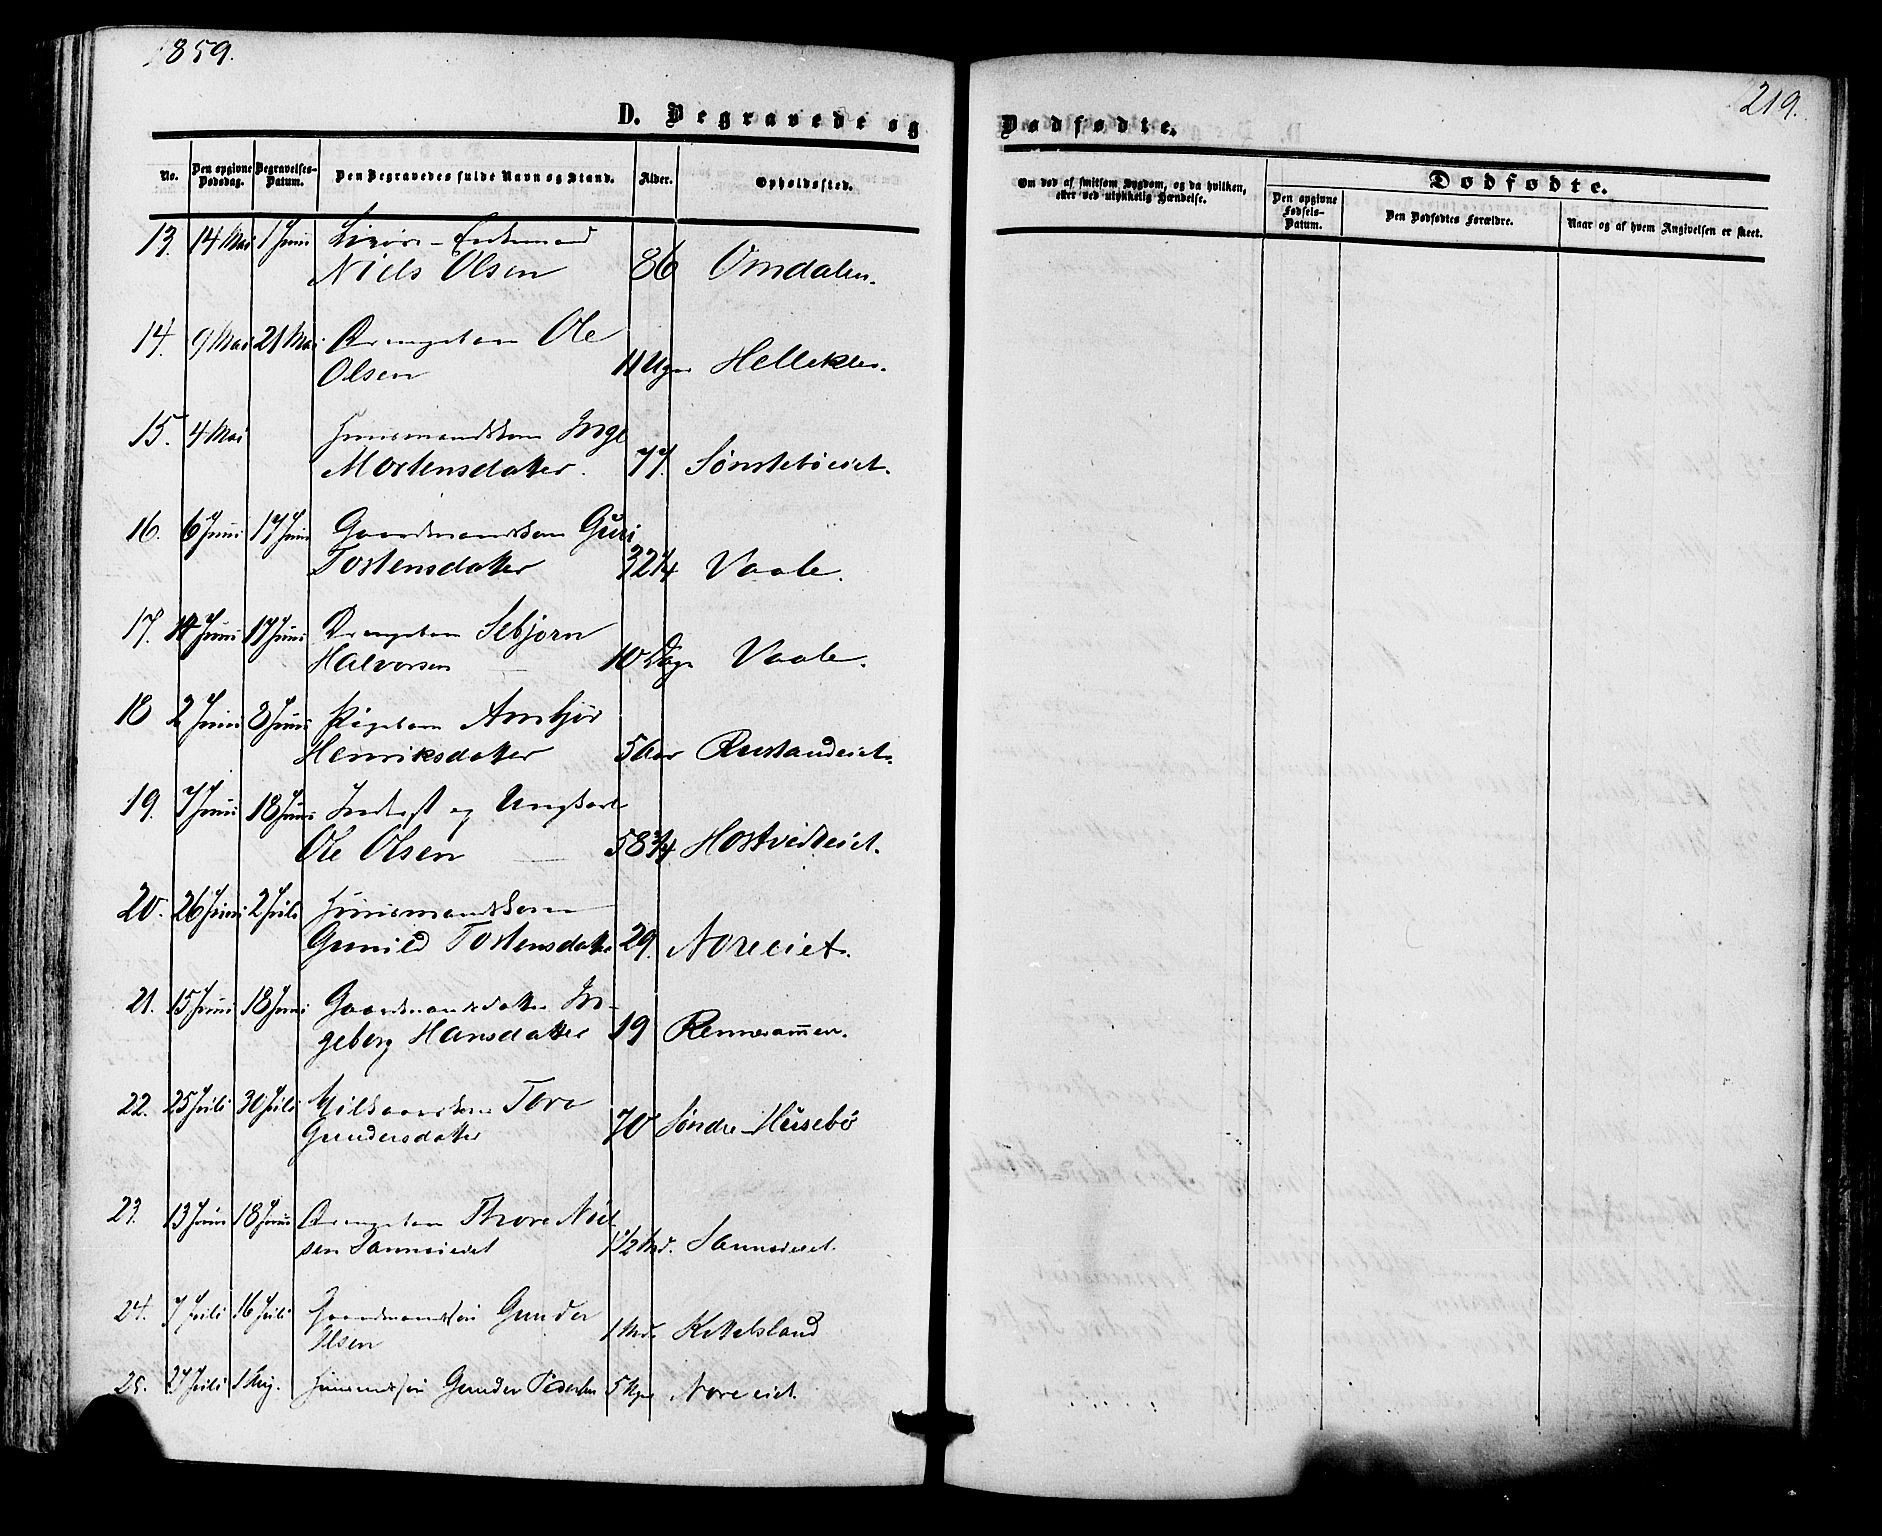 1859.
219.
D. Begravede og Dødfødte.
No. Den opgivne Dødsdag. Begravelses-Datum. Den Begravedes fulde Navn og Stand. Alder. Opholdssted.
Om død af smitsom Sygdom, og da hvilken, eller ved ulykkelig Hændelse.
Dødfødte.
Den opgivne Fødsels-Datum. Den Dødfødtes Forældre. Naar og af hvem Angivelsen er skeet.
13. 14 Mai 1 Juni Enkemand
Niels Olsen 86 Omdalen.
14. 9 Mai 21 Mai Drengebarn Ole
Olsen 11 Uger Helleklev.
15. 4 Mai Huusmandskone Inge
Mortensdatter. 77. Sønstebøeiet.
16. 6 Juni 17 Juni Gaardmandskone Guri
Tostensdatter 32 1/4 Vaale.
17. 14 Juni 17 Juni Drengebarn Sebjorn
Halvorsen 10 Dage Vaale.
18 2 Juni 8 Juni Pigebarn Ambjör
Henriksdatter 5 Aar Rustandeiet.
19. 7 Juni 18 Juni Inderst og Ungkarl
Ole Olsen 58 3/4 Hostvedteiet.
20. 26 Juni 2 Juli Huusmandskone
Gunild Tostensdatter 29. Noreeiet.
21. 15 Juni 18 Juni Gaardmandsdatter In-
geborg Hansdatter 19 Rennesammen.
22. 25 Juli 30 Juli Vilkaarskone Tora
Gundersdatter 70 Søndre-Husebö
23. 13 Juni 18 Juni Drengebarn Thore Niel-
sen Sanneseiet 1 1/2 Md. Sanneseiet.
24. 7 Juli 16 Juli Gaardmandssøn Gunder
Olsen 1 Md. Kittelsland
25. 27 Juli 1 Aug. Huusmandssøn Gunder Pedersen 5 Uger Noreeiet.